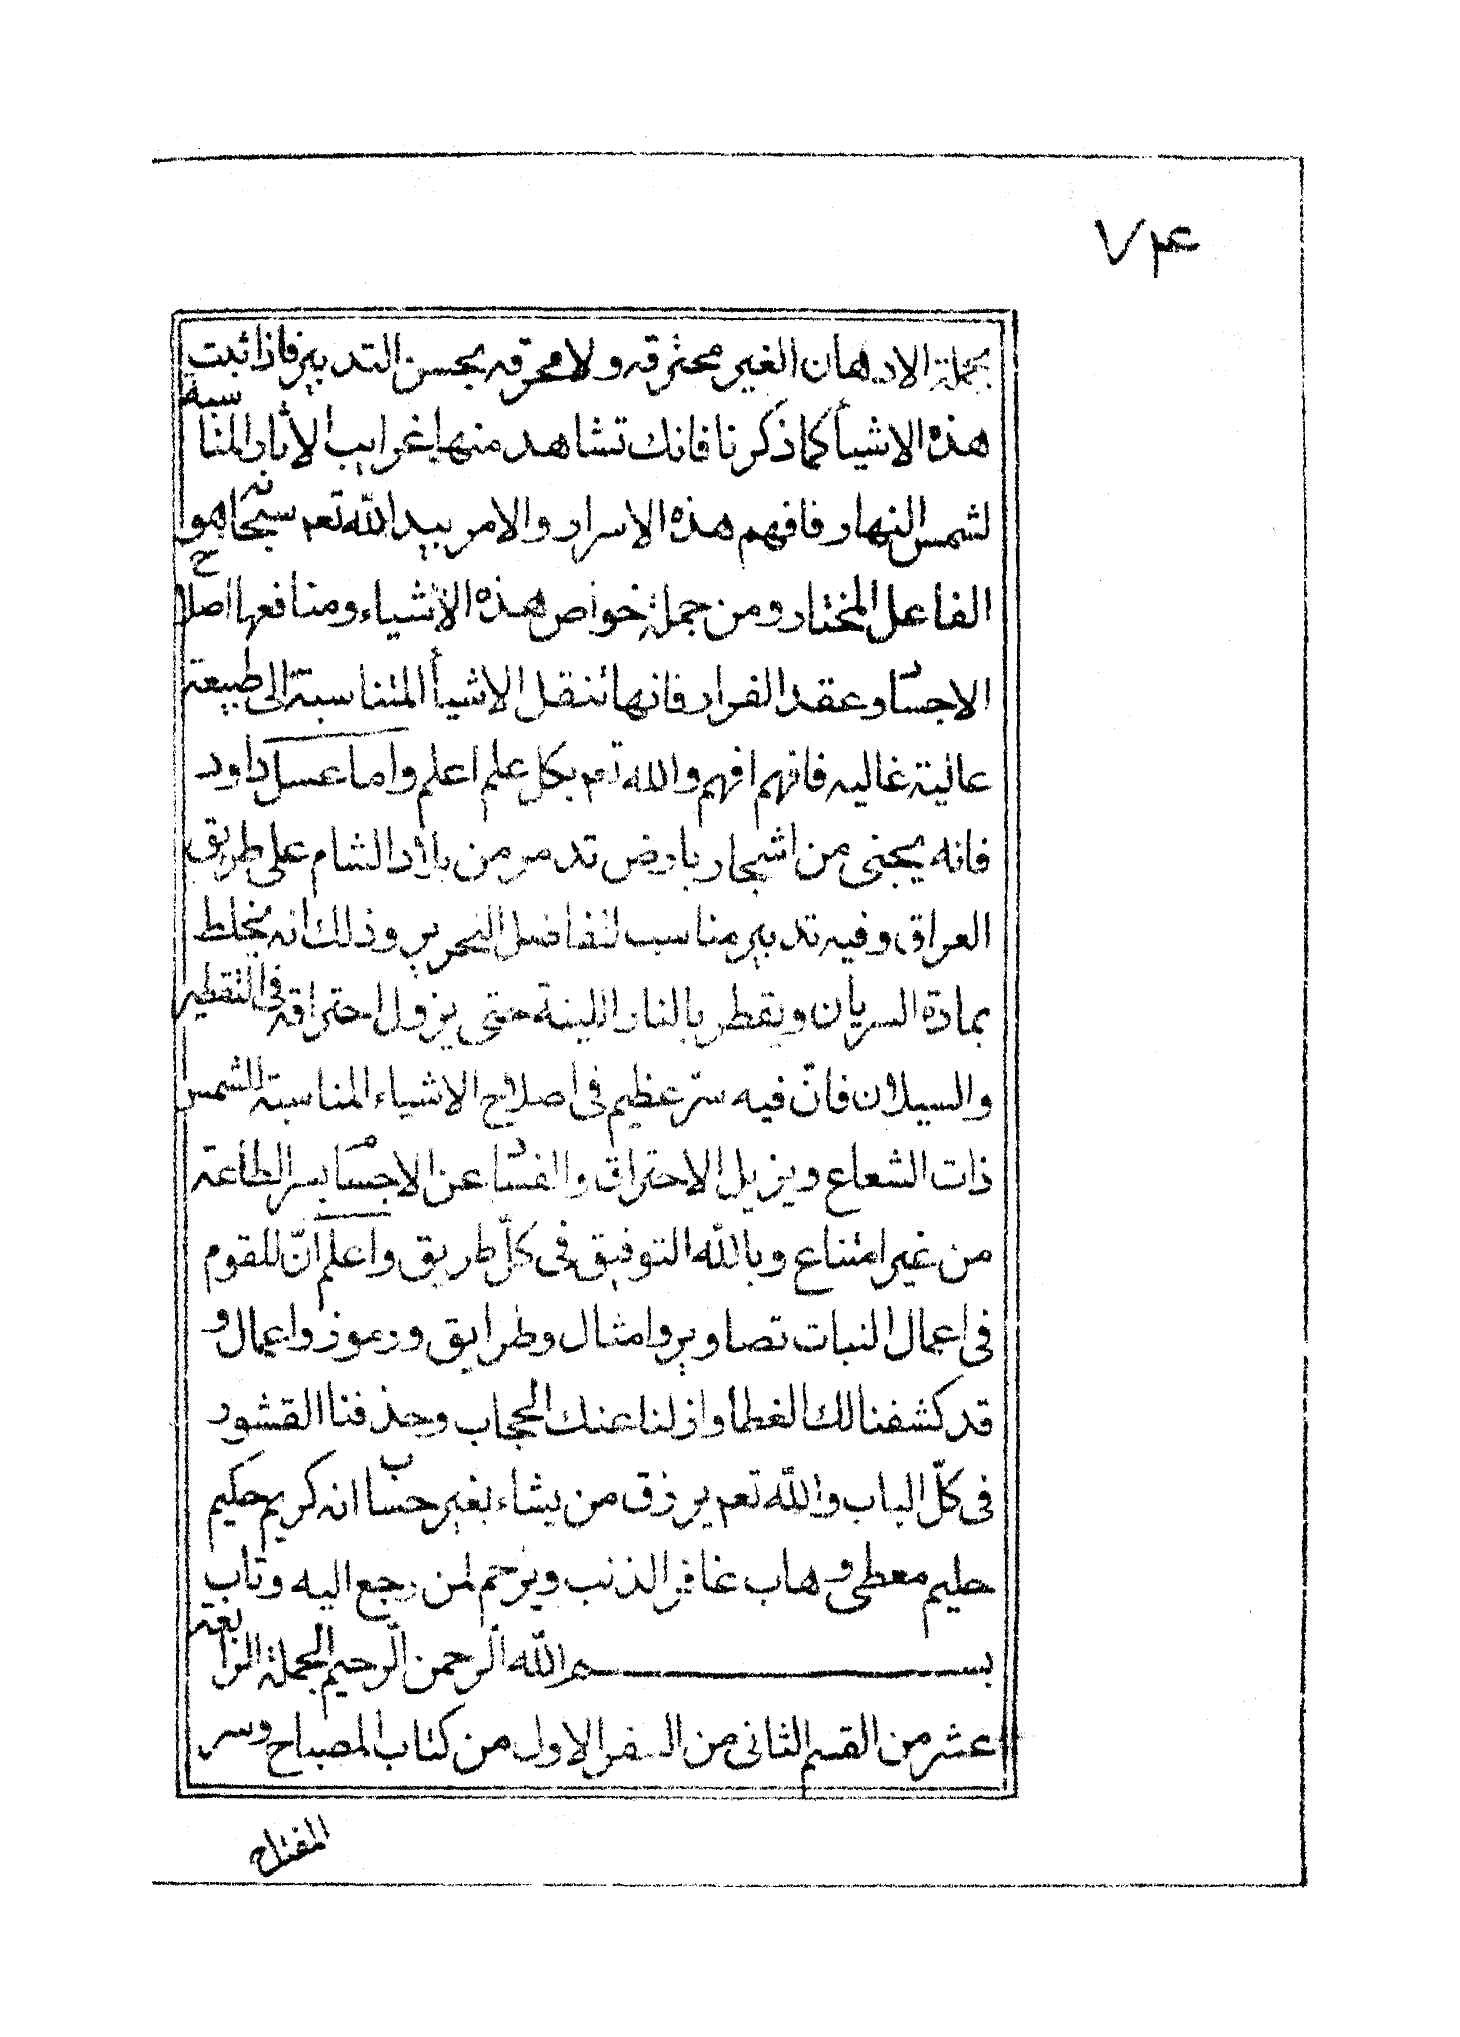 ٧۴
بجملة الادهان الغير محترقه ولا محرقه بحسن التدبير فاذا ثبت
هذه الاشيأ كما ذكرنا فانك تشاهد منها غرايب الاثار المناسبة
لشمس النهار فافهم هذه الاسرار والامر بيد الله تعم سبحانه هو
الفاعل المختار ومن جملة خواص هذه الاشياء ومنافعها اصلاح
الاجساد وعقد الفرار فانها تنقل الاشيأ المتناسبة الى طبيعة
عالية غاليه فافهم افهم والله تعم بكل علم اعلم واما عسل داود
فانه يجنى من اشجار بارض تدمر من بلاد الشام على طريق
العراق وفيه تدبير مناسب لتفاضل النحرير وذلك انه يخلط
بمادة السريان ويقطر بالنار اللينة حتى يزول احتراقه فى التقطير
والسيلان فانّ فيه سرّ عظيم فى اصلاح الاشياء المناسبة الشمس
ذات الشعاع ويزيل الاحتراق والفساد عن الاجسام بسر الطاعة
من غير امتناع وبالله التوفيق فى كلّ طريق واعلم انّ للقوم
فى اعمال النبات تصاوير وامثال وطرايق ورموز واعمال و
قد كشفنا لك الغطا وازلنا عنك الحجاب وحذفنا القشور
فى كلّ الباب والله تعم يرزق من يشاء بغير حساب انه كريم حكيم
حليم معطى وهاب غافر الذنب ويرحم لمن رجع اليه وتاب
بسم الله الرحمن الرحيم الجملة الرابعة
عشر من القسم الثانى من السفر الاول من كتاب المصباح وسر
المفتاح